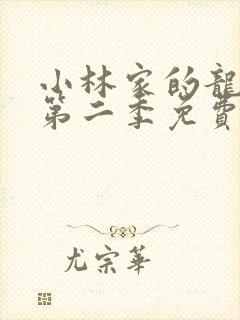 小林家的龍
第二季免費
尤宗華